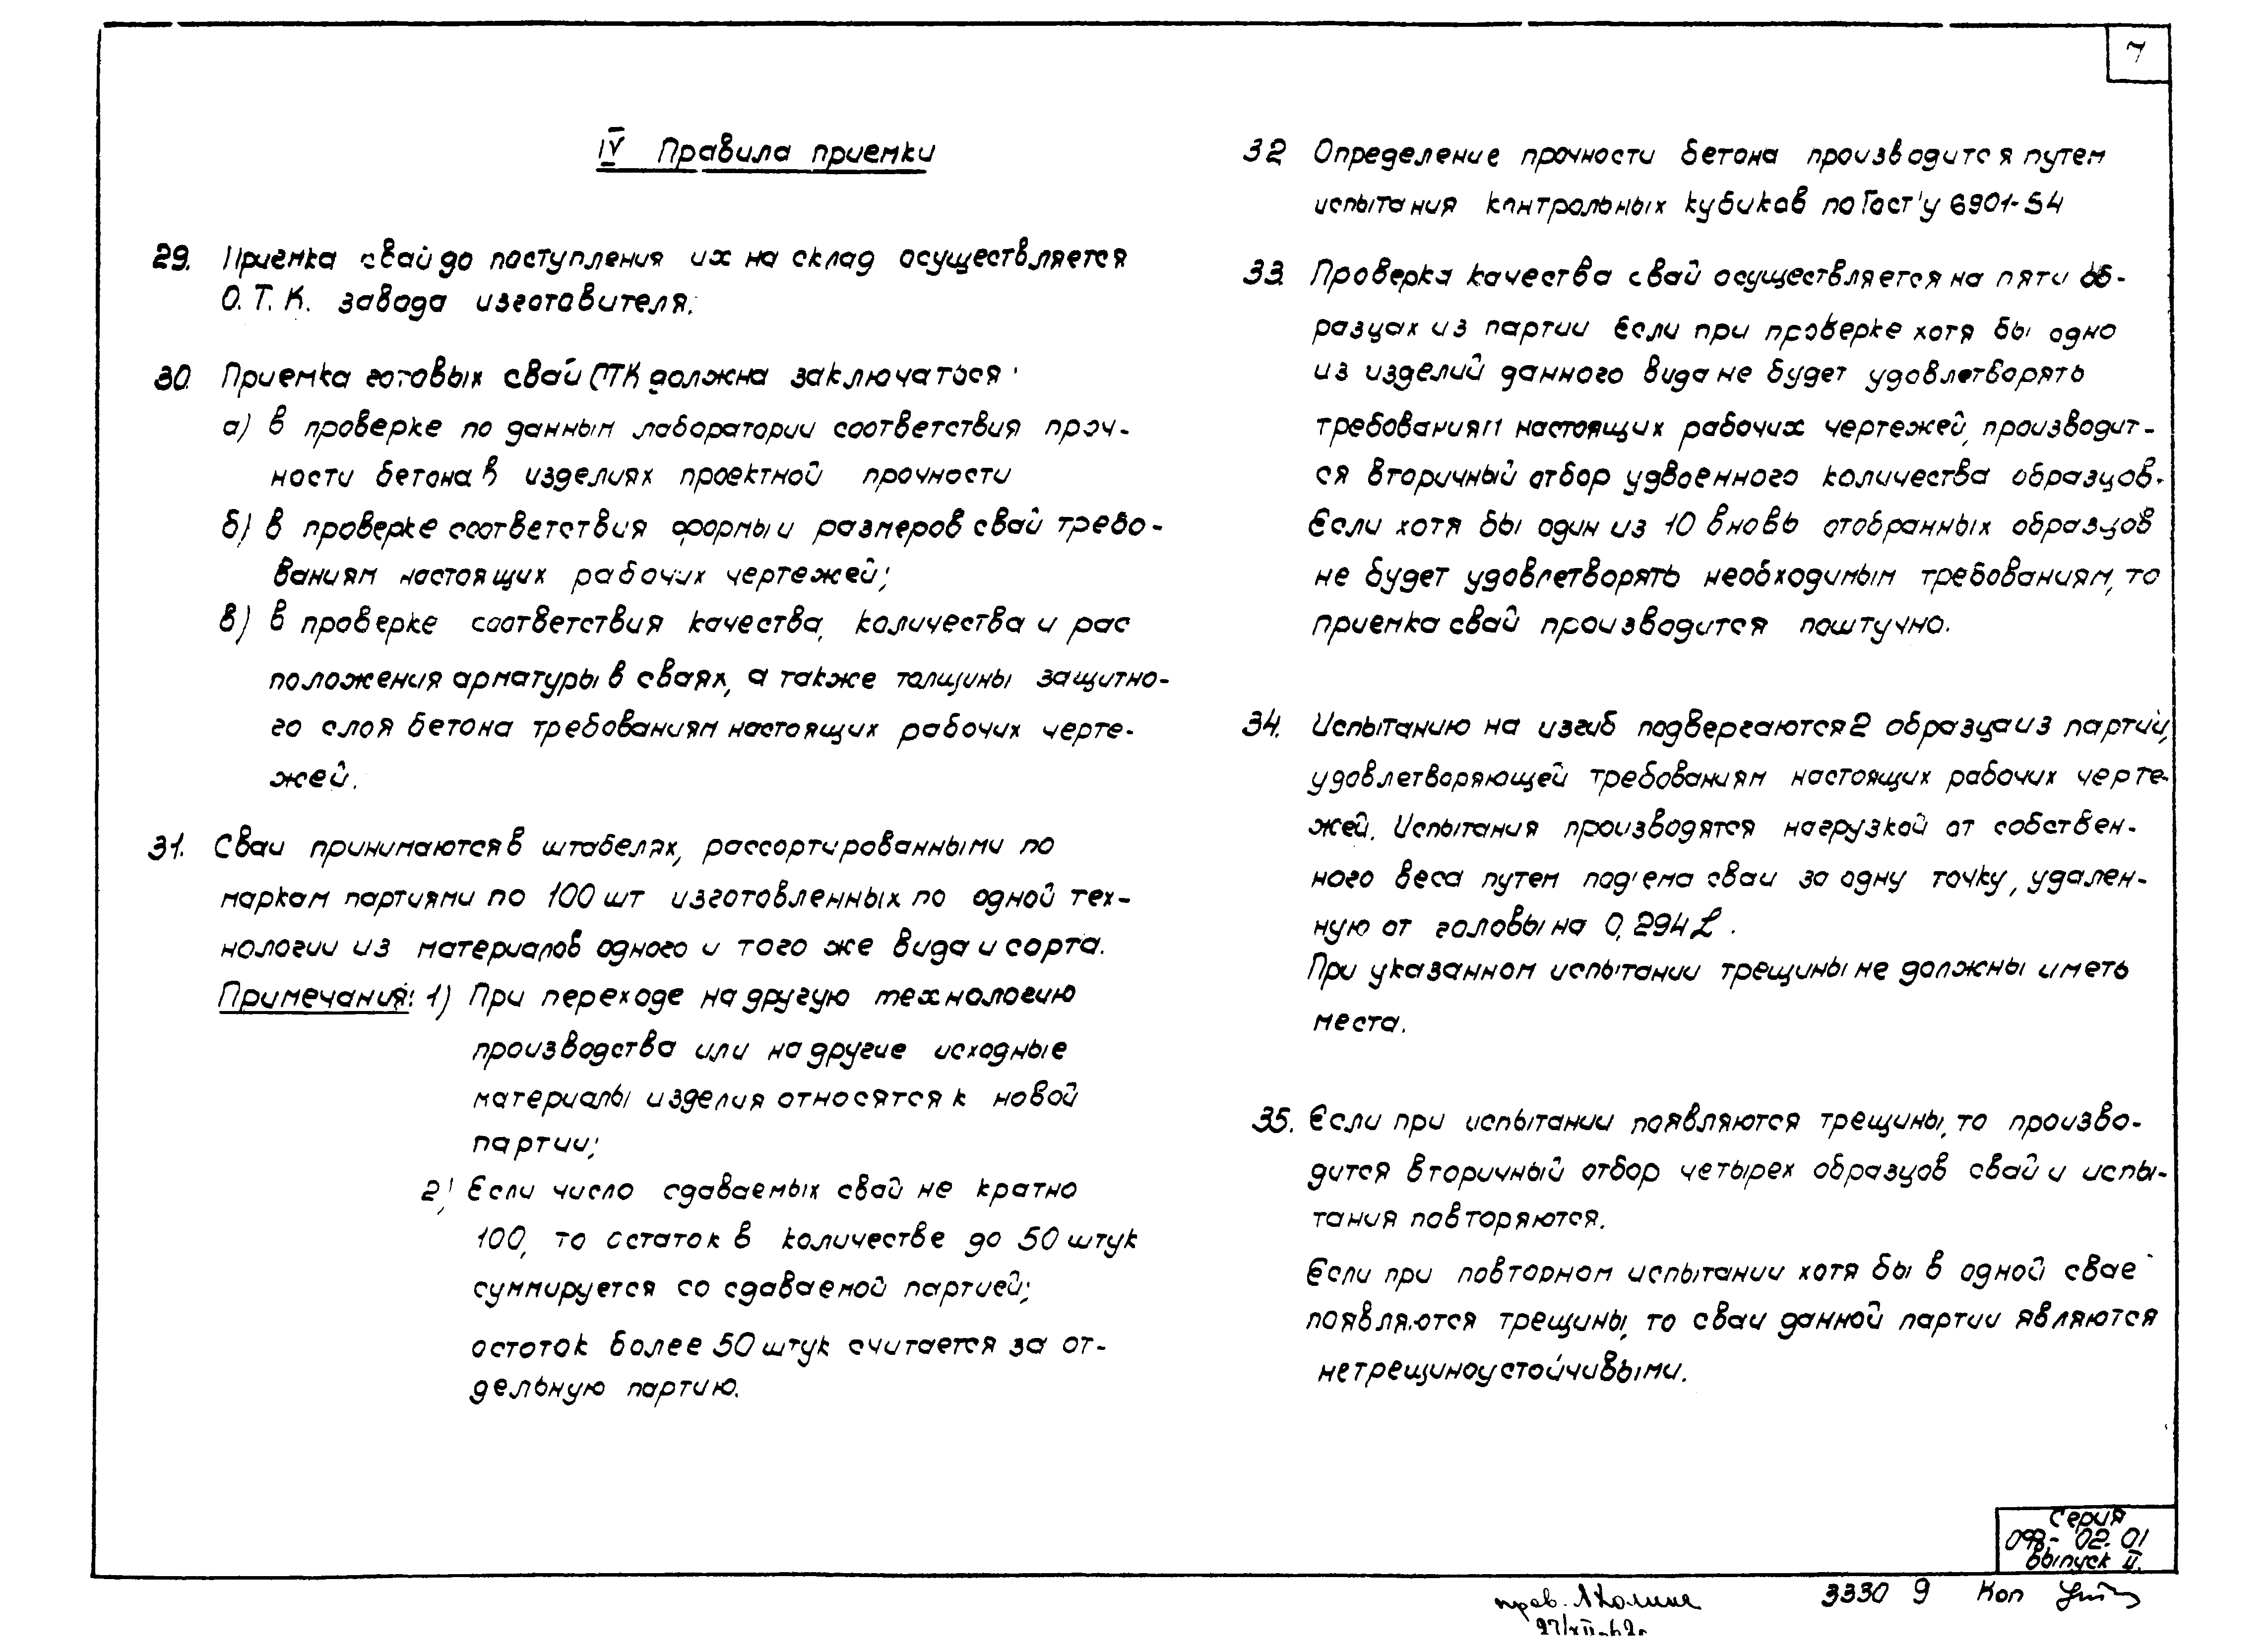 7
IV Правила приемки
29. Приемка свай до поступления их на склад осуществляется
О.Т.К. завода изготовителя.
30. Приемка готовых свай ОТК должна заключаться:
а) в проверке по данным лаборатории соответствия проч-
ности бетона в изделиях проектной прочности
б) в проверке соответствия формы и размеров свай требо-
ваниям настоящих рабочих чертежей;
в) в проверке соответствия качества, количества и рас
положения арматуры в сваях, а также толщины защитно-
го слоя бетона требованиям настоящих рабочих черте-
жей.
31. Сваи принимаются в штабелях, рассортированными по
маркам партиями по 100 шт изготовленных по одной тех-
нологии из материалов одного и того же вида и сорта.
Примечания: 1) При переходе на другую технологию
производства или на другие исходные
материалы изделия относятся к новой
партии;
2) Если число сдаваемых свай не кратно
100, то остаток в количестве до 50 штук
суммируется со сдаваемой партией;
остоток более 50 штук считается за от-
дельную партию.
32 Определение прочности бетона производится путем
испытания контрольных кубиков по Гост'у 6901-54
33. Проверка качества свай осуществляется на пяти об-
разцах из партии Если при проверке хотя бы одно
из изделий данного вида не будет удовлетворять
требованиям настоящих рабочих чертежей, производит-
ся вторичный отбор удвоенного количества образцов.
Если хотя бы один из 10 вновь отобранных образцов
не будет удовлетворять необходимым требованиям, то
приемка свай производится поштучно.
34. Испытанию на изгиб подвергаются 2 образца из партии,
удовлетворяющей требованиям настоящих рабочих черте-
жей. Испытания производятся нагрузкой от собствен-
ного веса путем под'ема сваи за одну точку, удален-
ную от головы на 0,294 L.
При указанном испытании трещины не должны иметь
места.
35. Если при испытании появляются трещины, то произво-
дится вторичный отбор четырех образцов свай и испы-
тания повторяются.
Если при повторном испытании хотя бы в одной свае
появляются трещины, то сваи данной партии являются
нетрещиноустойчивыми.
Серия
098-02.01
Выпуск II.
3330 9 Коп
пров.
27/XII-62г